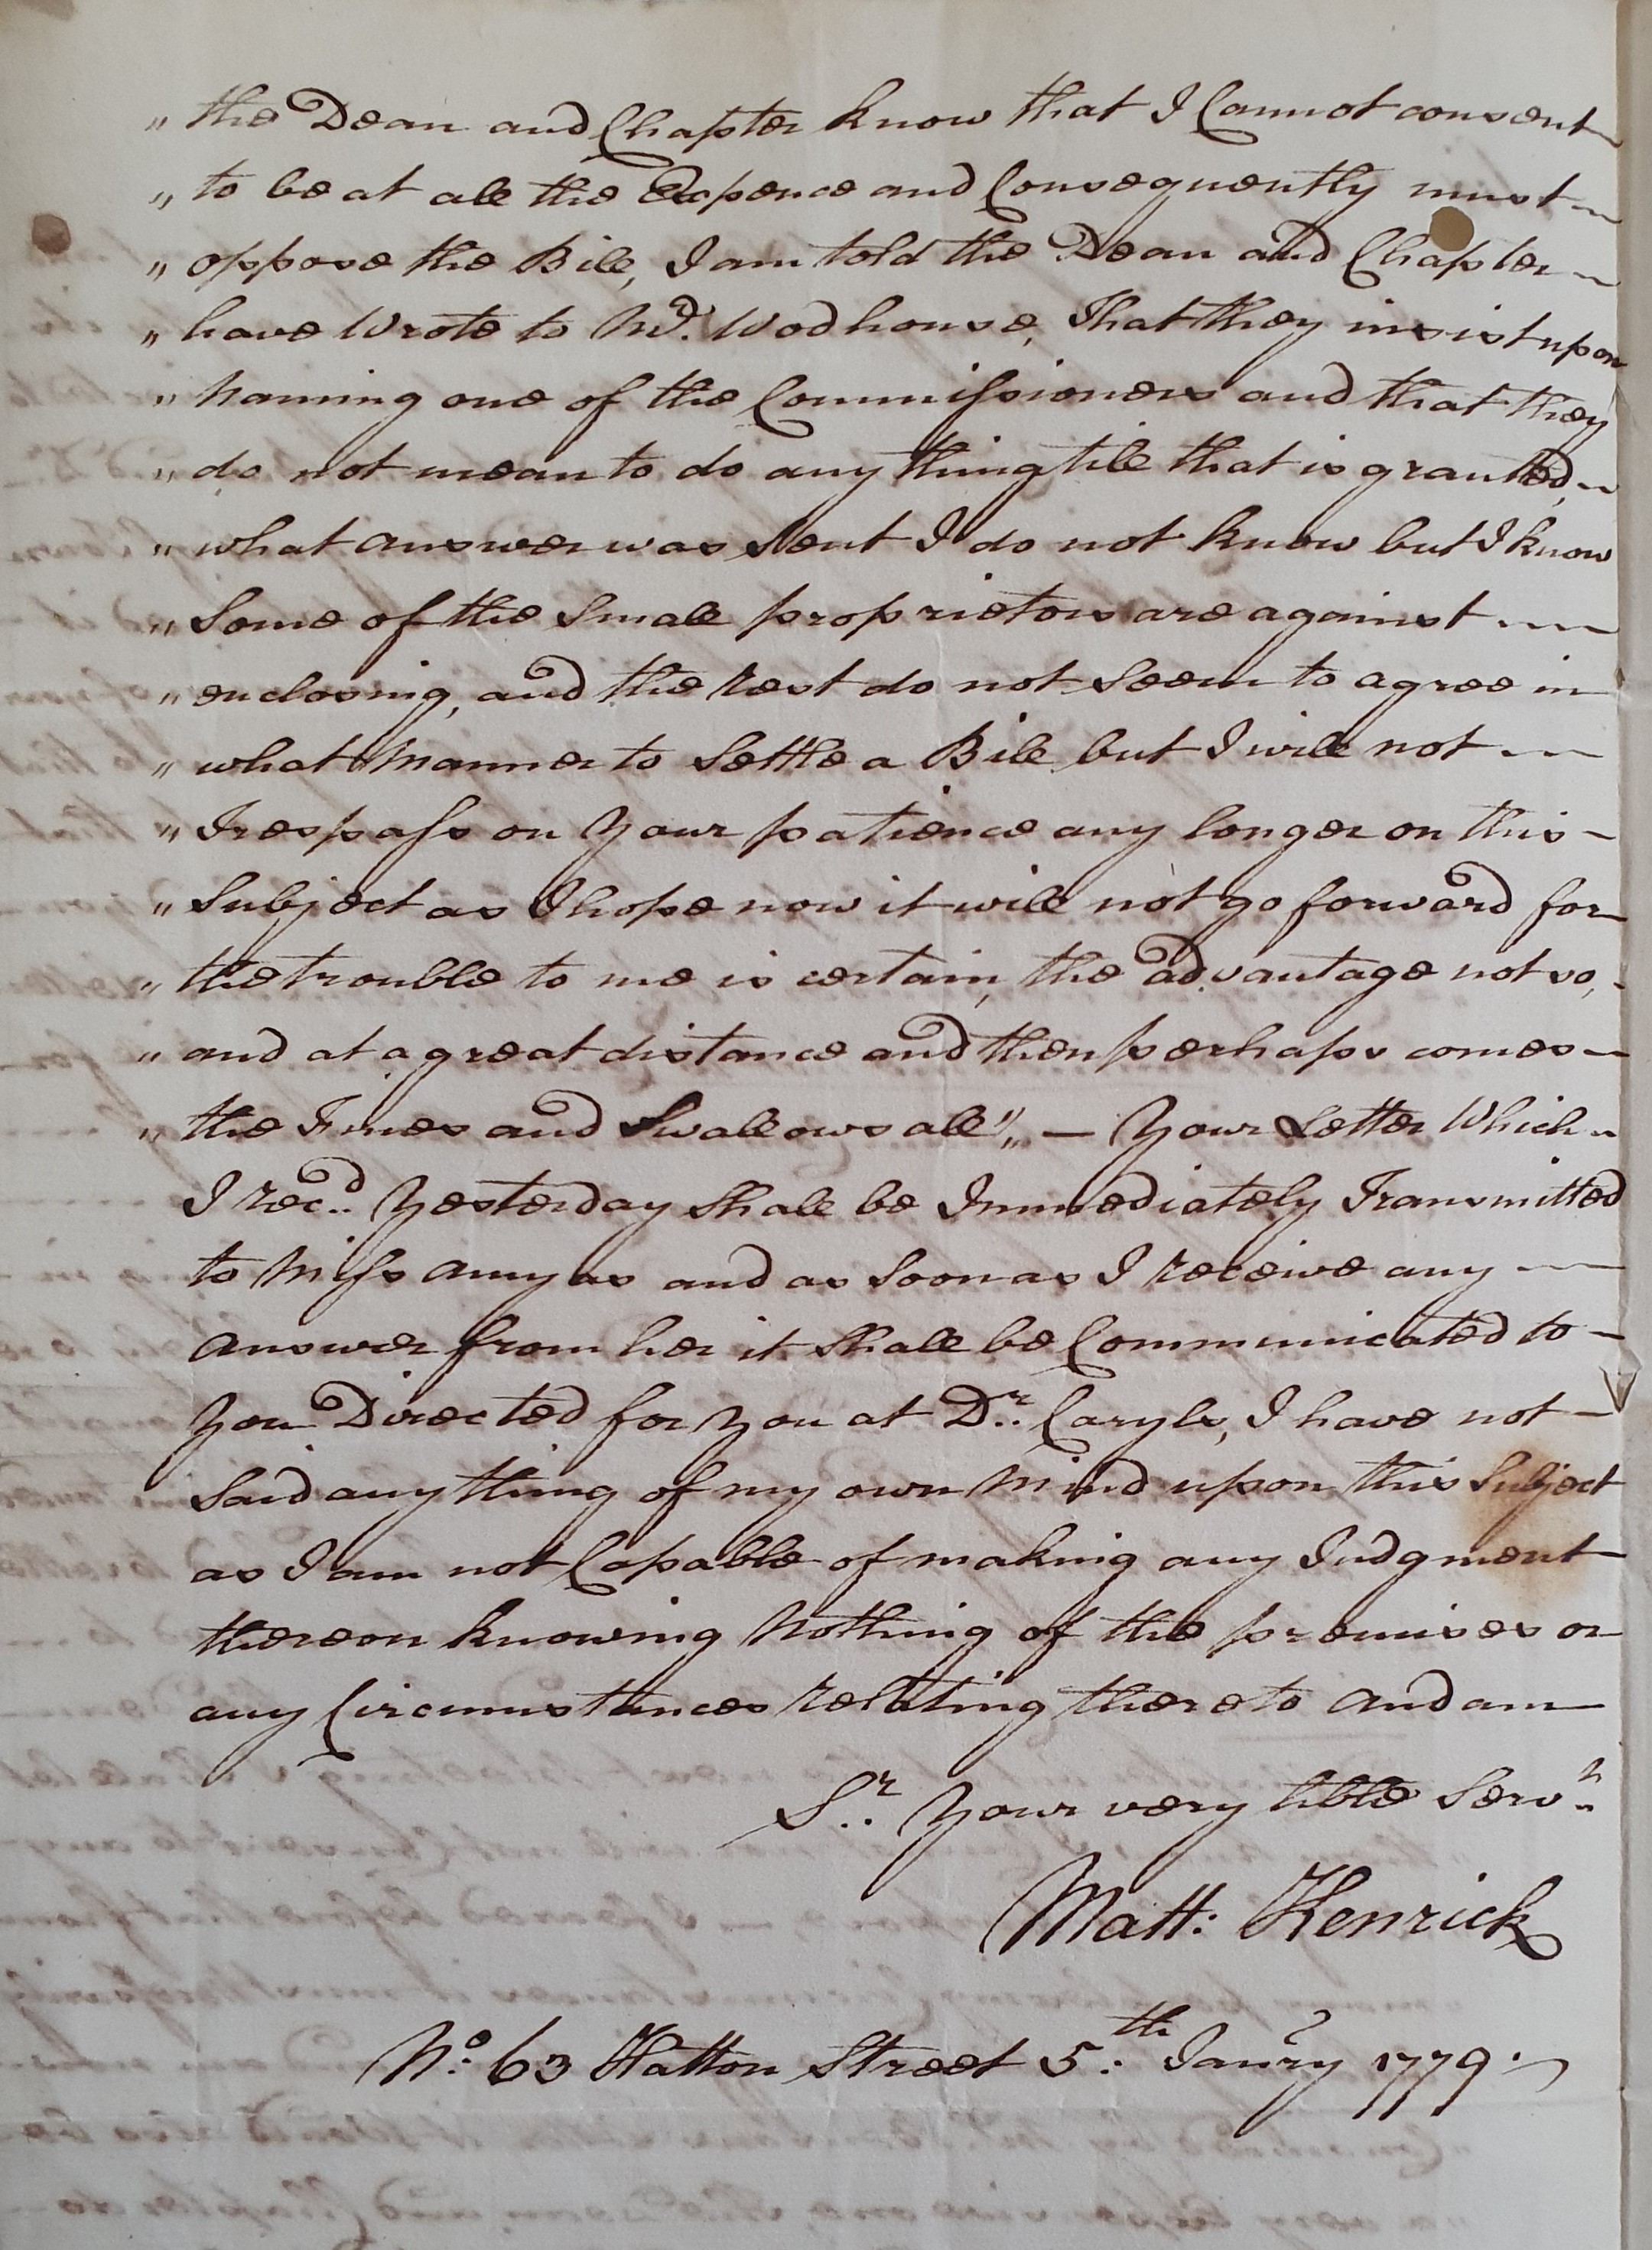 " the Dean and Chapter know that I Cannot consent
" to be at all the Expence and Consequently must
" oppose the Bill, I am told the Dean and Chapter
" have Wrote to Mr. Wodhouse, That they insist upon
" naming one of the Commissioners and that they
" do not mean to do any thing till that is granted,
" what answer was Sent I do not know but I know
" Some of the Small proprietors are against
" enclosing, and the rest do not Seem to agree in
" what Manner to Settle a Bill but I will not
" Trespass on Your patience any longer on this
" Subject as I hope now it will not go forward for
" the trouble to me is certain, the advantage not so,
" and at a great distance and then perhaps comes
" the Fines and Swallows all" — Your Letter Which
I rec.d Yesterday Shall be Immediately Transmitted
to Miss Amyas and as Soon as I receive any
Answer from her it Shall be Communicated to
You Directed for You at Dr. Caryls, I have not
Said any thing of my own Mind upon this Subject
as I am not Capable of making any Judgment
thereon knowing Nothing of the premises or
any Circumstances relating thereto And am
Sr. Your very hble Serv.
Matt: Kenrick
No. 63 Hatton Street 5.th Janry 1779.